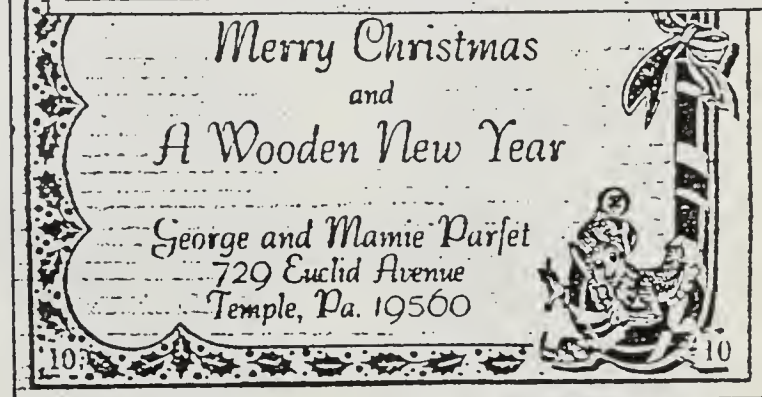 Merry Christmas
and
A Wooden New Year
George and Mamie Parfet
729 Euclid Avenue
Temple, Pa. 19560
10 10